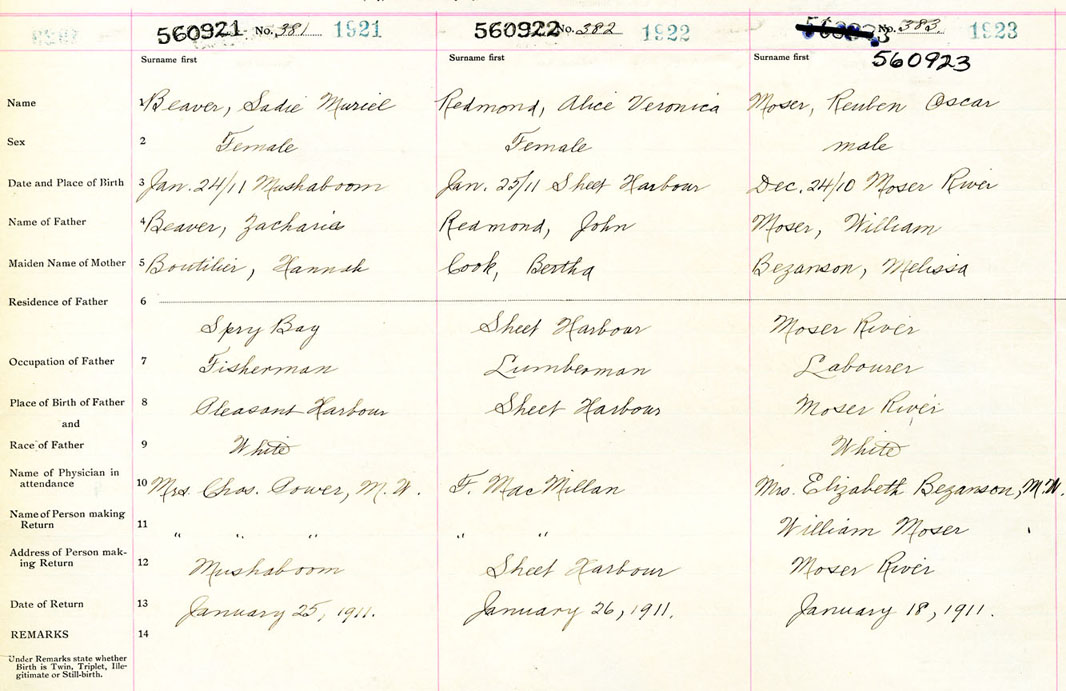 560921 No. 381 1921 560922 No. 382 1922 No. 383 1923
560923
Surname first Surname first Surname first
Name 1 Beaver, Sadie Muriel Redmond, Alice Veronica Moser, Reuben Oscar
Sex 2 Female Female male
Date and Place of Birth 3 Jan. 24/11 Mushaboom Jan. 25/11 Sheet Harbour Dec. 24/10 Moser River
Name of Father 4 Beaver, Zacharia Redmond, John Moser, William
Maiden Name of Mother 5 Boutilier, Hannah Cook, Bertha Bezanson, Melissa
Residence of Father 6
Spry Bay Sheet Harbour Moser River
Occupation of Father 7 Fisherman Lumberman Labourer
Place of Birth of Father 8 Pleasant Harbour Sheet Harbour Moser River
and
Race of Father 9 White White
Name of Physician in
attendance 10 Mrs. Chas. Power, M.W. F. MacMillan Mrs. Elizabeth Bezanson, M.W.
Name of Person making
Return 11 " " " " " William Moser
Address of Person mak-
ing Return 12 Mushaboom Sheet Harbour Moser River
Date of Return 13 January 25, 1911. January 26, 1911. January 18, 1911.
REMARKS 14
Under Remarks state whether
Birth is Twin, Triplet, Ille-
gitimate or Still-birth.